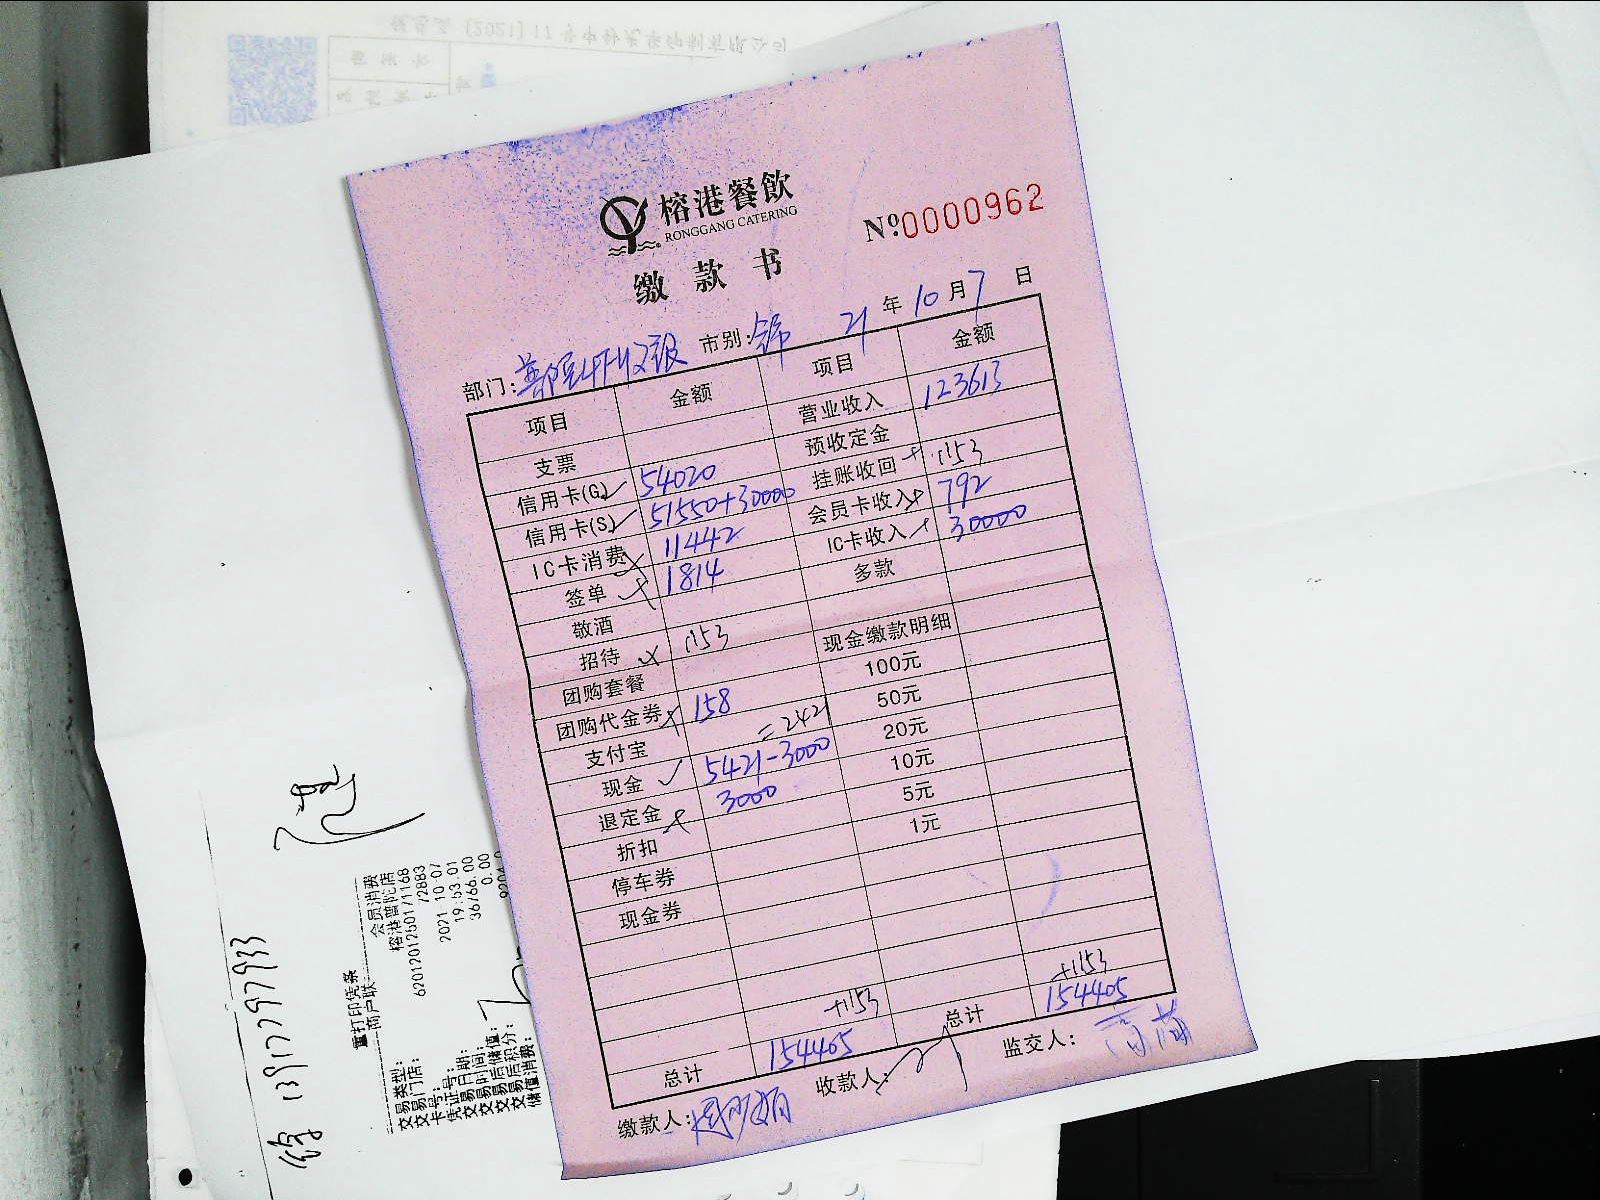 榕港餐飲
RONGGANG CATERING
№0000962
缴款书
部门: 收银 市别: 21年10月7日
项目 金额 项目 金额
支票 营业收入 123613
信用卡(G) 54020 预收定金
信用卡(S) 51550+30000 挂账收回 + 1153
IC卡消费 11442 会员卡收入 792
签单 1814 IC卡收入 30000
敬酒 多款
招待 1153 现金缴款明细
团购套餐 100元
团购代金券 158 50元
支付宝 =2421 20元
现金 5421-3000 10元
退定金 3000 5元
折扣 1元
停车券
现金券
+1153 +1153
总计 154405 总计 154405
缴款人: 收款人: 监交人:
徐 13917797933
重打印凭条
商户联
交易类型: 会员消费
交易门店: 榕港普陀店
卡号: 6201201250171168
凭证号: 72883
交易日期: 2021 10 07
交易时间: 19:53:01
交易后储值: 36766.00
交易后积分: 0.00
储值消费: